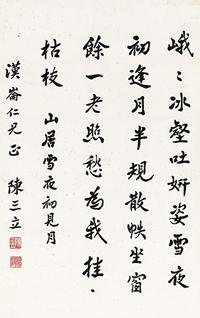 峨々冰壑吐妍姿雪夜
初逢月半規散帙坐窗
餘一老照愁為我挂
枯枝 山居雪夜初見月
漢崙仁兄正 陳三立